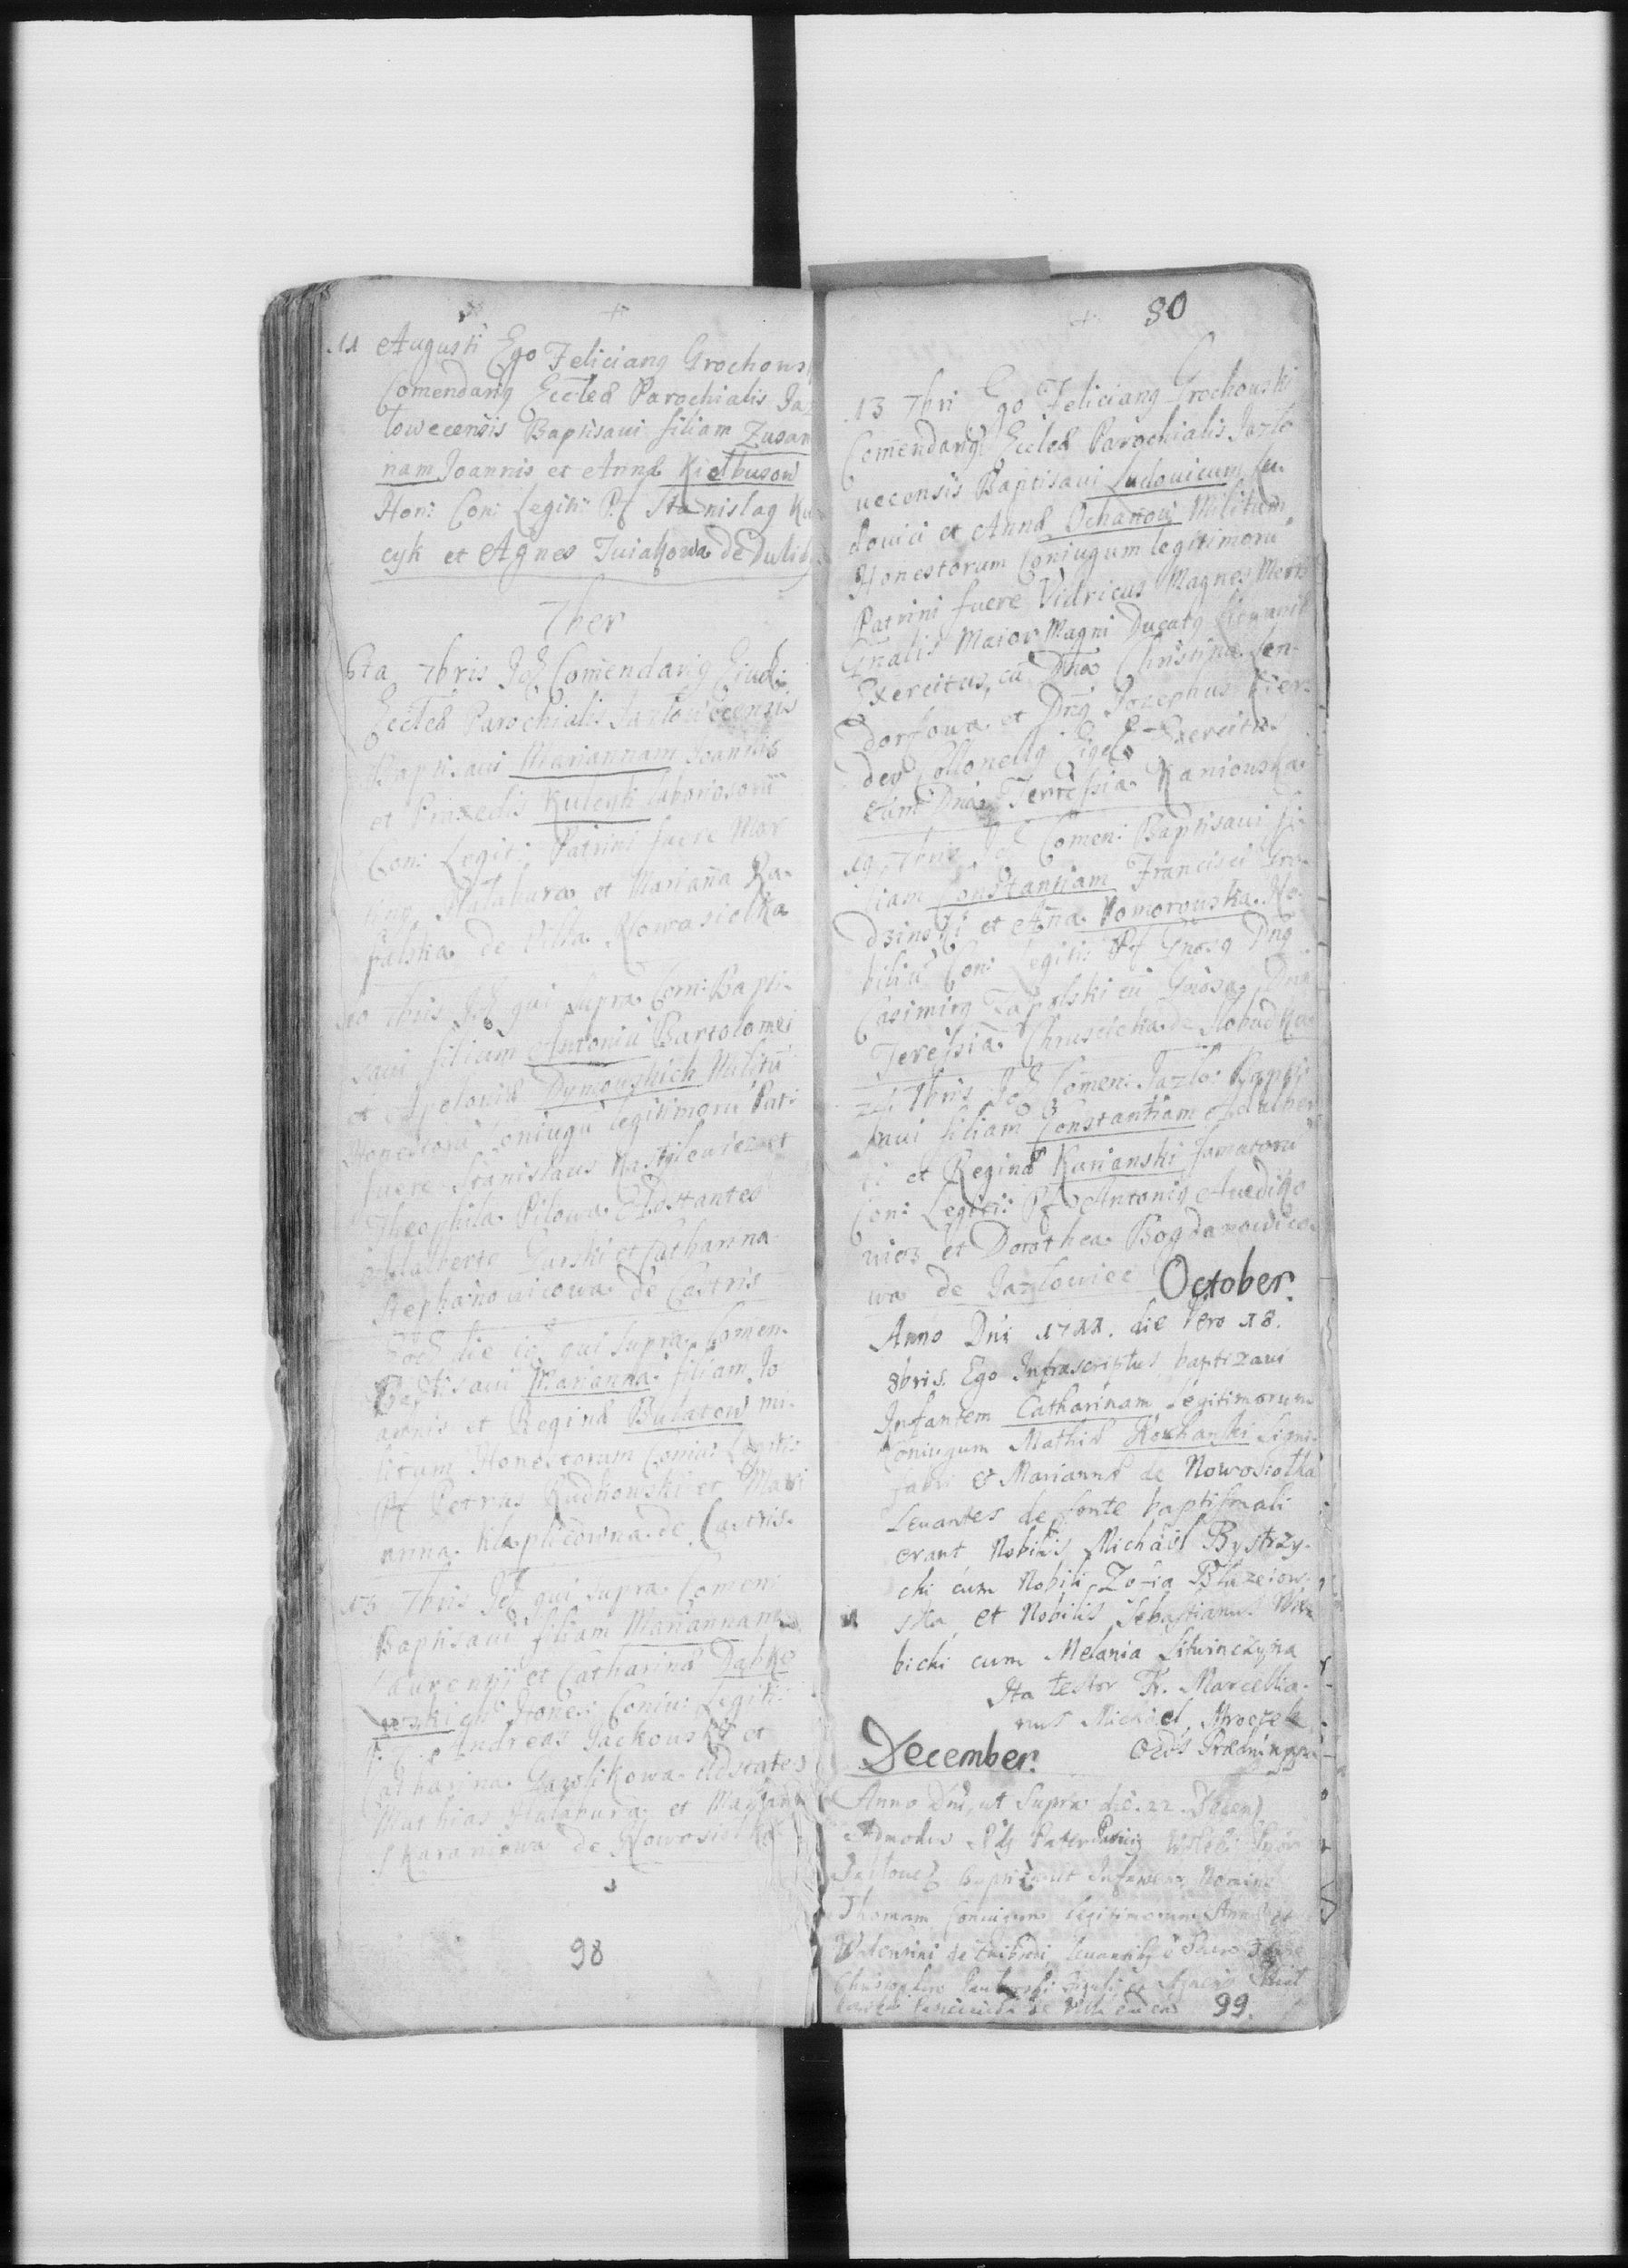 11 Augusti Ego Felicianq Grochows
Comendariq Eccleæ Parochialis Jaz
lowecensis Baptisaui filiam Zusan
nam Joannis et Annæ Kiełbusow
Hon: Con: Legiti: Pf Stanislaq Ku
cyk et Agnes Iwiakowa de Dulib
7ber
6ta 7bris Jd Comendariq Eiud:
Eccleæ Parochialis Jazlowecensis
Baptisaui Mariannam Joannis
et Praxedis Kulczyk laboriosorū
Con: Legit: Patrini fuere Mar
tinq Hałabura et Mariaña Ra
falska de Villa Nowosiolka
10 7bris Jd qui supra Com: Bapti-
saui filium Antoniū Bartolomei
et Apoloniæ Dymowskich Militū
Honestorū Coniugū legitimorū Pat:
fuere Stanislaus Kastylewicz et
Theophila Pilowa Adstantes
Adalberto Gurski et Catharina
Stephanowicowa de Castris
Eod die id qui supra Comen.
Baptisaui Mariannā filiam Jo
annis et Reginæ Bulatow mi-
litum Honestorum Coniu: Legiti:
Pf Petrus Rudkouski et Mari
anna Klaplicowna de Castris.
13 7bris Jd qui supra Comen:
Baptisaui filiam Mariannam
Laurentij et Catharinæ Dąbko
wski Hones: Coniu: Legiti:
Andreas Jackouski et
Catharina Gawlikowa Adstātes
Mathias Hałabura et Marianna
Skaraniowa de Nowosiolka
98
80
13 7bri Ego Felicianq Grochouski
Comendariq Eccleæ Parochialis Jazlo
uecensis Baptisaui Ludouicum Lu-
douici et Annæ Ochanow Militum
Honestorum Coniugum legitimorū
Patrini fuere Vldricus Magnes
Gñalis Maior Magni Ducatq Lituaniæ
Exercitus, cū Dña Christina Len-
dorfowa et Dnq Josephus
der Collonellq Eiqd Exercitus
cum Dña Terressia Kaniouska
19 7bris Jd Comen: Baptisaui fi-
liam Constantiam Francisci Gro-
dzinski et Aña Komorouska No-
biliū Con: Legiti: Pf Gñosq Dnq
Casimirq Zapolski cū Gñosa Dña
Teressia Chruscicka de Slobudka
24 7bris Jd Comen: Jazlo: Bapti
saui filiam Constantiam Adalber
ti et Reginæ Kurianski famatorū
Con: Legiti: Pf Antoniq Awediko
wicz et Dorothea Bogdanowico
wa de Jazlowiec October.
Anno Dni 1722. die Vero 18.
8bris. Ego Infrascriptus baptizaui
Infantem Catharinam Legitimorum
Coniugum Mathiæ Kochanski Ligni-
fabri et Mariannæ de Nowosiołka
Leuantes de fonte baptismali
erant Nobilis Michael Bystrzy-
cki cum Nobili Zofia Błazeiow-
ska, et Nobilis Sebastianus
bicki cum Melania Litwinczyna
Ita testor Fr. Marcellia-
nus Michael Mroczek
Ords Prædi:
December.
Anno Dni, ut Supra die 22. Decem
Admodus Rds Pater
Baptizauit Infantem Nomine
Thomam Coniugum legitimorum Annæ et
Walentini de leuantibq è Sacro fonte
Christophoro
99.